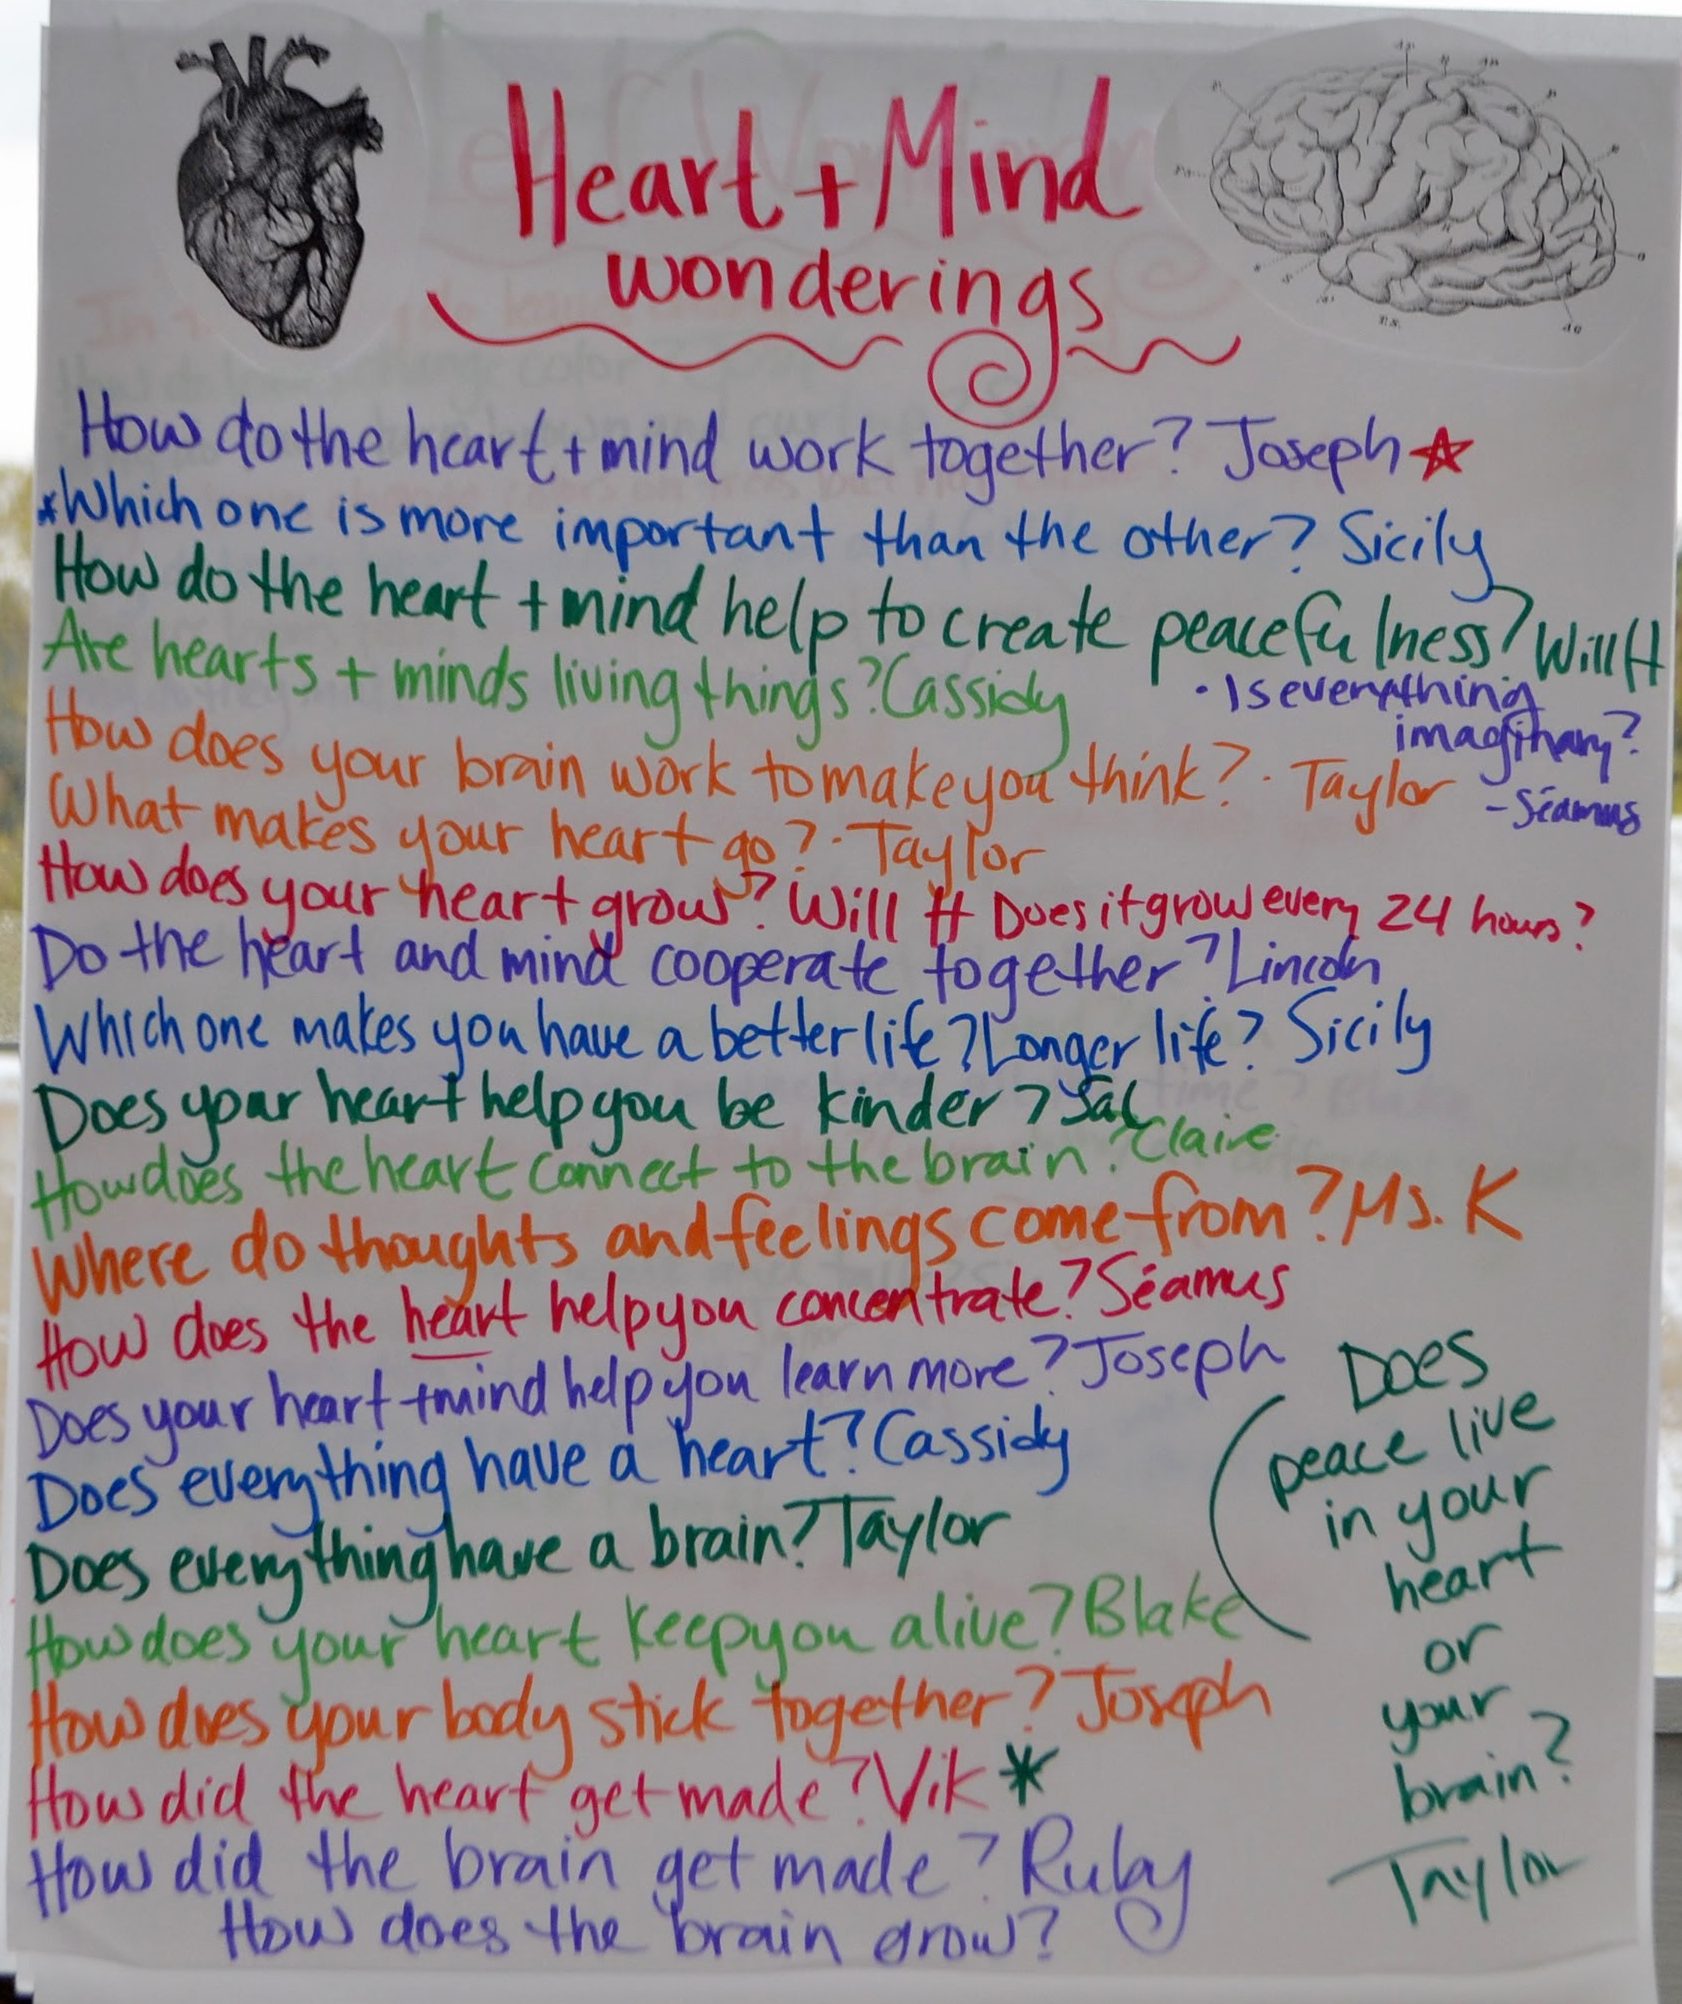 Heart + Mind
wonderings
How do the heart + mind work together? Joseph
Which one is more important than the other? Sicily
How do the heart + mind help to create peacefulness? Will H
Are hearts + minds living things? Cassidy
• Is everything
imaginary?
- Séamus
How does your brain work to make you think? · Taylor
What makes your heart go? · Taylor
How does your heart grow? Will H Does it grow every 24 hours?
Do the heart and mind cooperate together? Lincoln
Which one makes you have a better life? Longer life? Sicily
Does your heart help you be kinder? Sal
How does the heart connect to the brain? Claire
Where do thoughts and feelings come from? Ms. K
How does the heart help you concentrate? Séamus
Does your heart + mind help you learn more? Joseph
Does everything have a heart? Cassidy
Does everything have a brain? Taylor
How does your heart keep you alive? Blake
How does your body stick together? Joseph
How did the heart get made? Vik
How did the brain get made? Ruby
How does the brain grow?
Does
peace live
in your
heart
or
your
brain?
Taylor